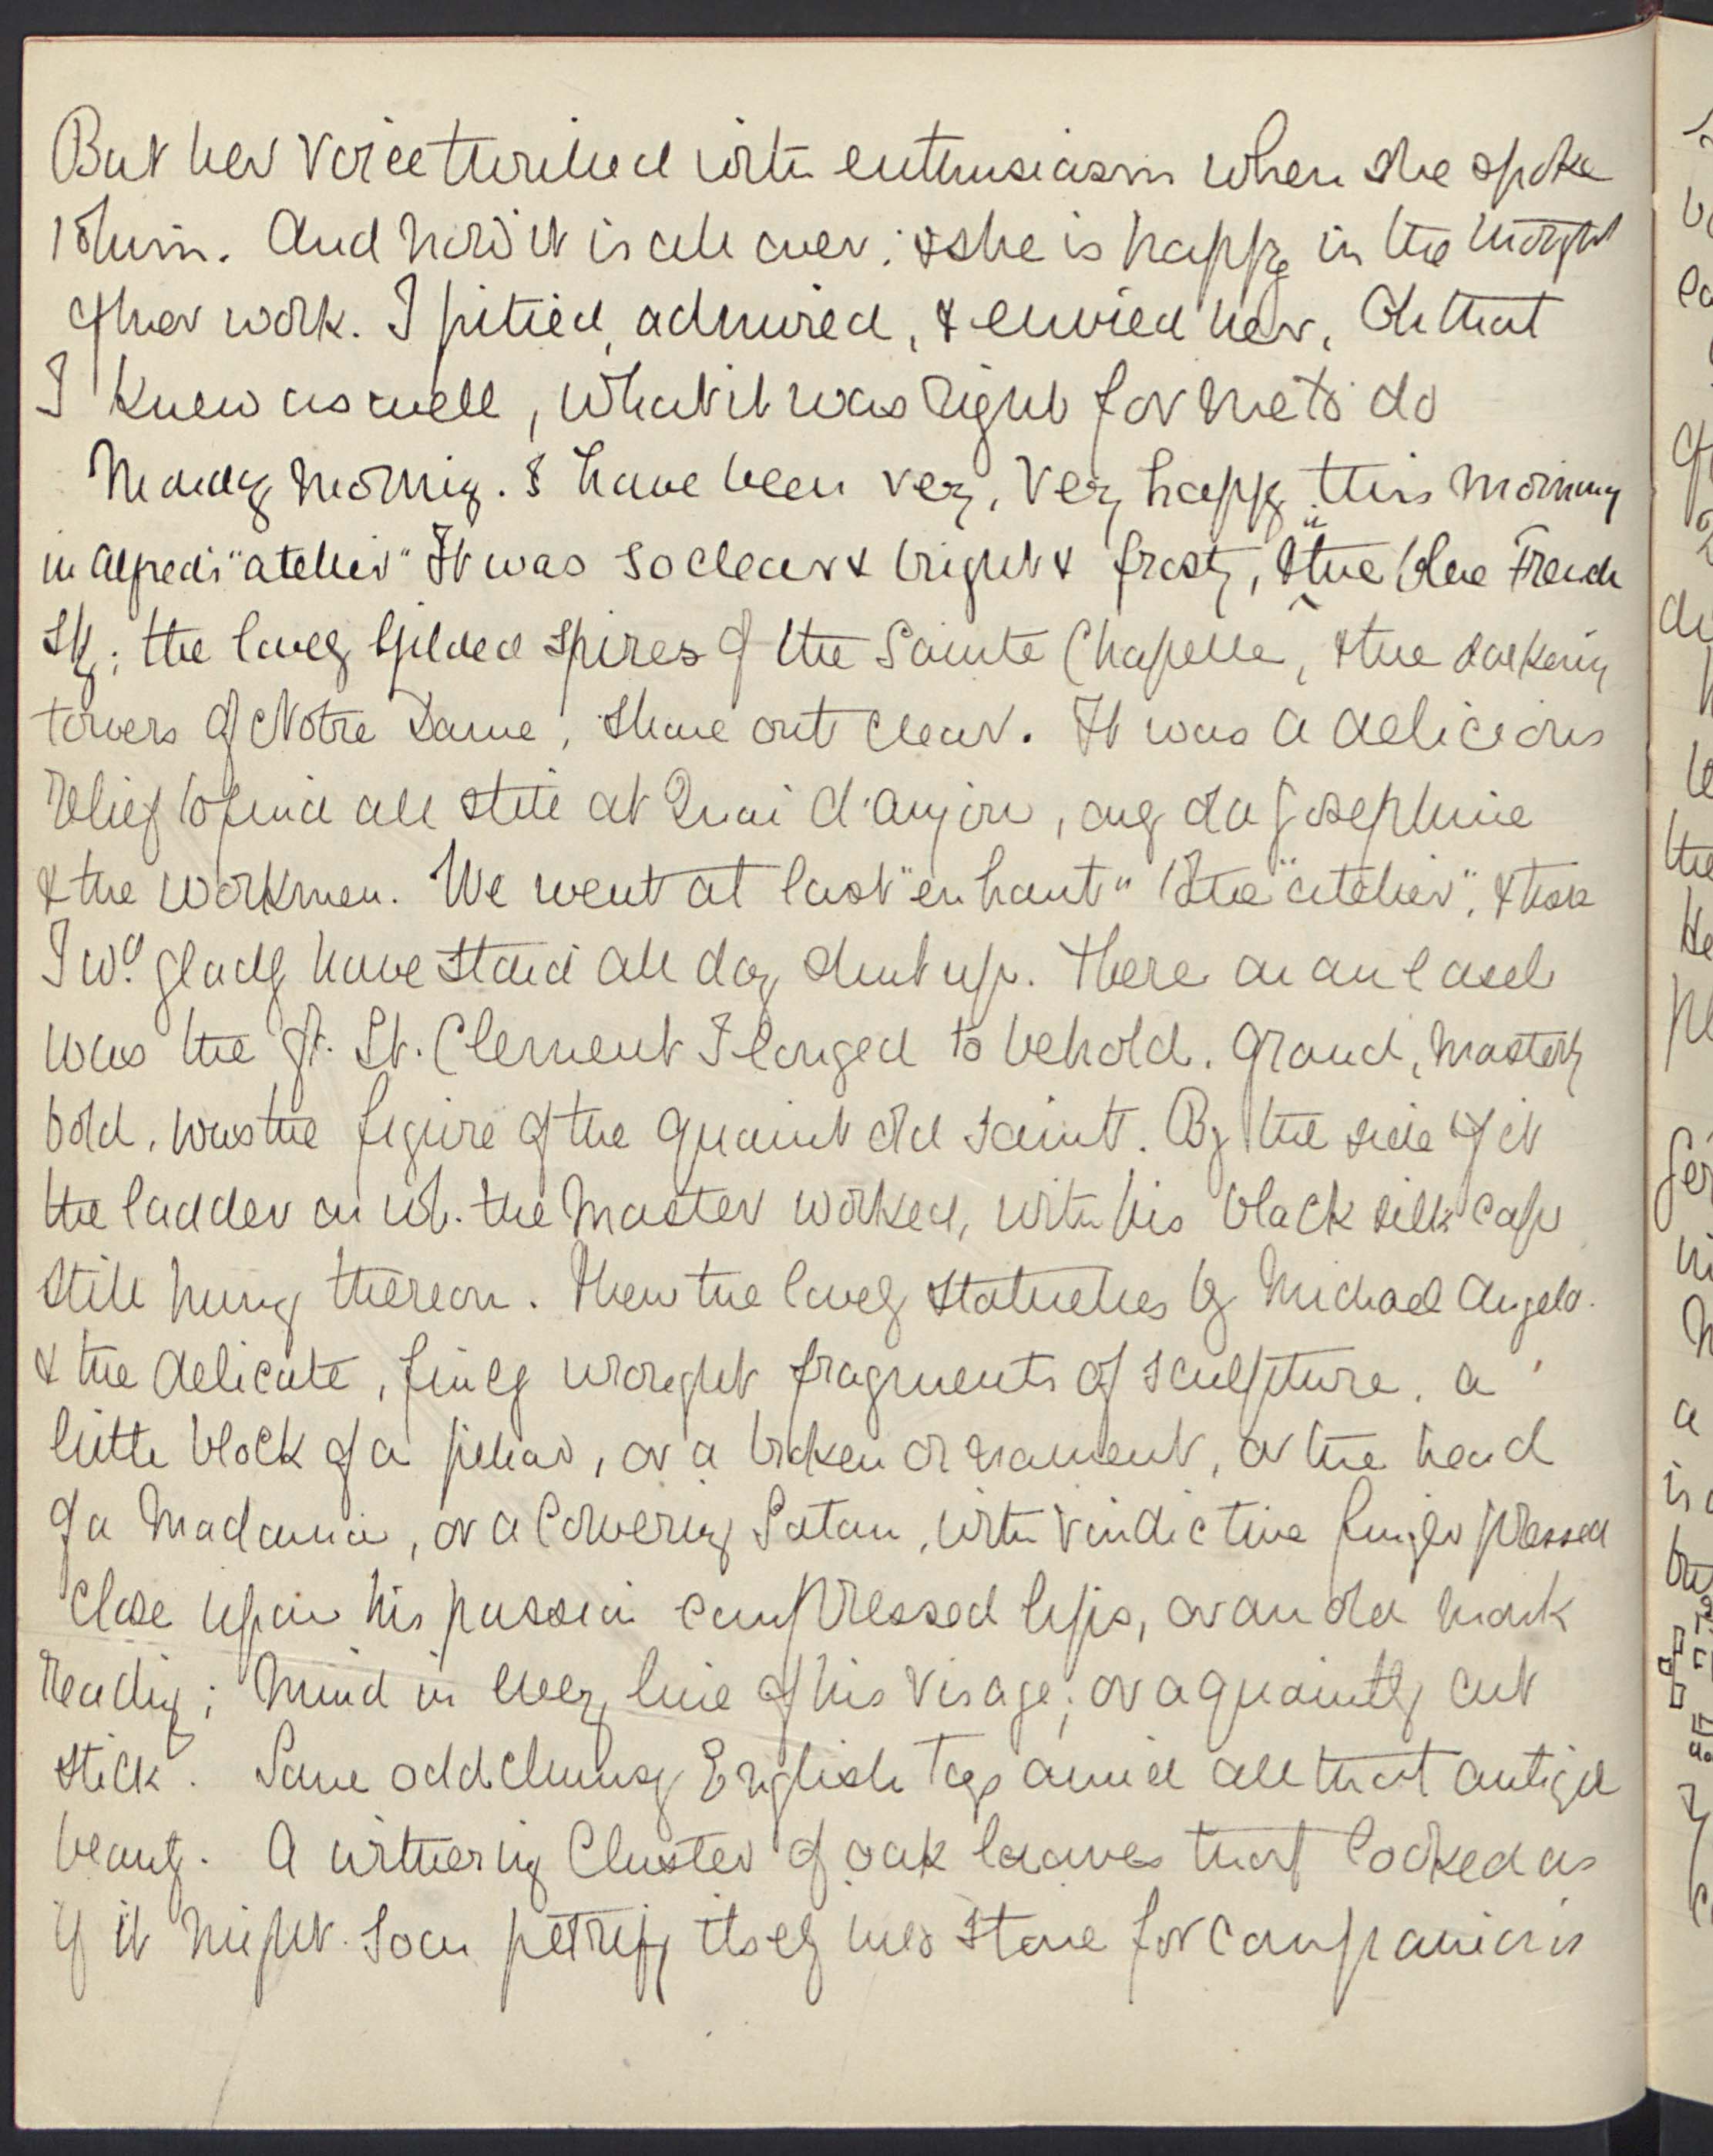 But her voice thrilled with enthusiasm when she spoke
to him. And now it is all over: & she is happy in the thought
of her work. I pitied, admired, & envied her, Oh that
I knew as well, what it was right for me to do
Monday Morning. I have been very, very happy this morning
in Alfred's "atelier" It was so clear & bright & frosty, & the blue French
sky; the lovely gilded spires of the Sainte Chapelle, & the
towers of Notre Dame, shone out clear. It was a delicious
relief to find all still at Quai d'Anjou, only old Josephine
& the workmen. We went at last "en haut" to the "atelier", & there
I wd. gladly have staid all day shut up. There on an easel
was the gt. St. Clement I longed to behold. Grand, masterly
bold, was the figure of the quaint old saint. By the side of it
the ladder on wh. the Master worked, with his black silk cap
still hung thereon. Then the lovely statuettes by Michael Angelo.
& the delicate, finely wrought fragments of sculpture, a
little block of a pillar, or a broken ornament, or the head
of a Madonna, or a cowering Satan, with vindictive finger pressed
close upon his passion compressed lips, or an old monk
reading; mind in every line of his visage; or a quaintly cut
stick. Some odd clumsy English toys amid all that antique
beauty. A withering cluster of oak leaves that looked as
if it might soon petrify itself into stone for companions